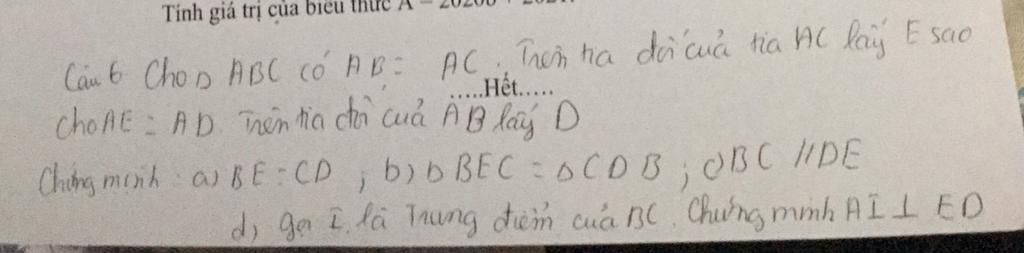 Tính giá trị của biểu thức A =
Câu 6 Cho Δ ABC có AB = AC. Trên tia đối cuả tia AC lấy E sao
.....Hết.....
cho AE = AD. Trên tia đối cuả AB lấy D
Chứng minh : a) BE = CD ; b) Δ BEC = Δ CDB ; c) BC // DE
d, gọi I là Trung điểm cuả BC. Chứng minh AI ⊥ ED